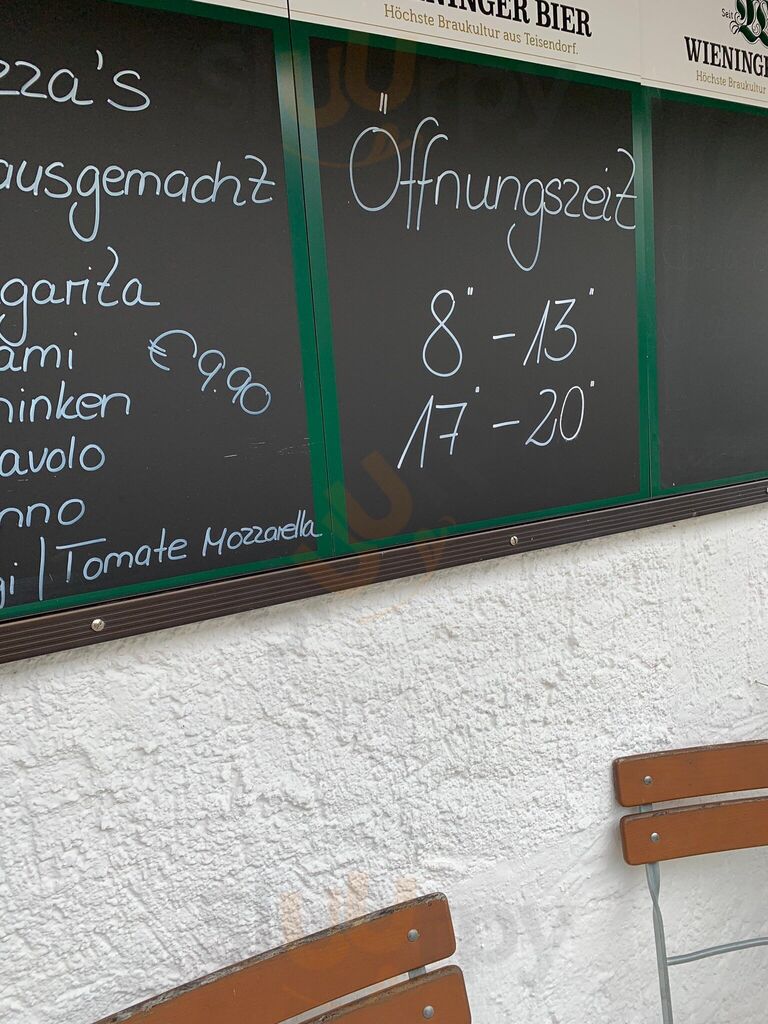 WIENINGER BIER
Höchste Braukultur aus Teisendorf.
Seit
WIENINGER
Höchste Braukultur
zza's
ausgemacht
garita
ami
hinken
avolo
nno
gi | Tomate Mozzarella
€ 9.90
Öffnungszeit
8" - 13"
17" - 20"